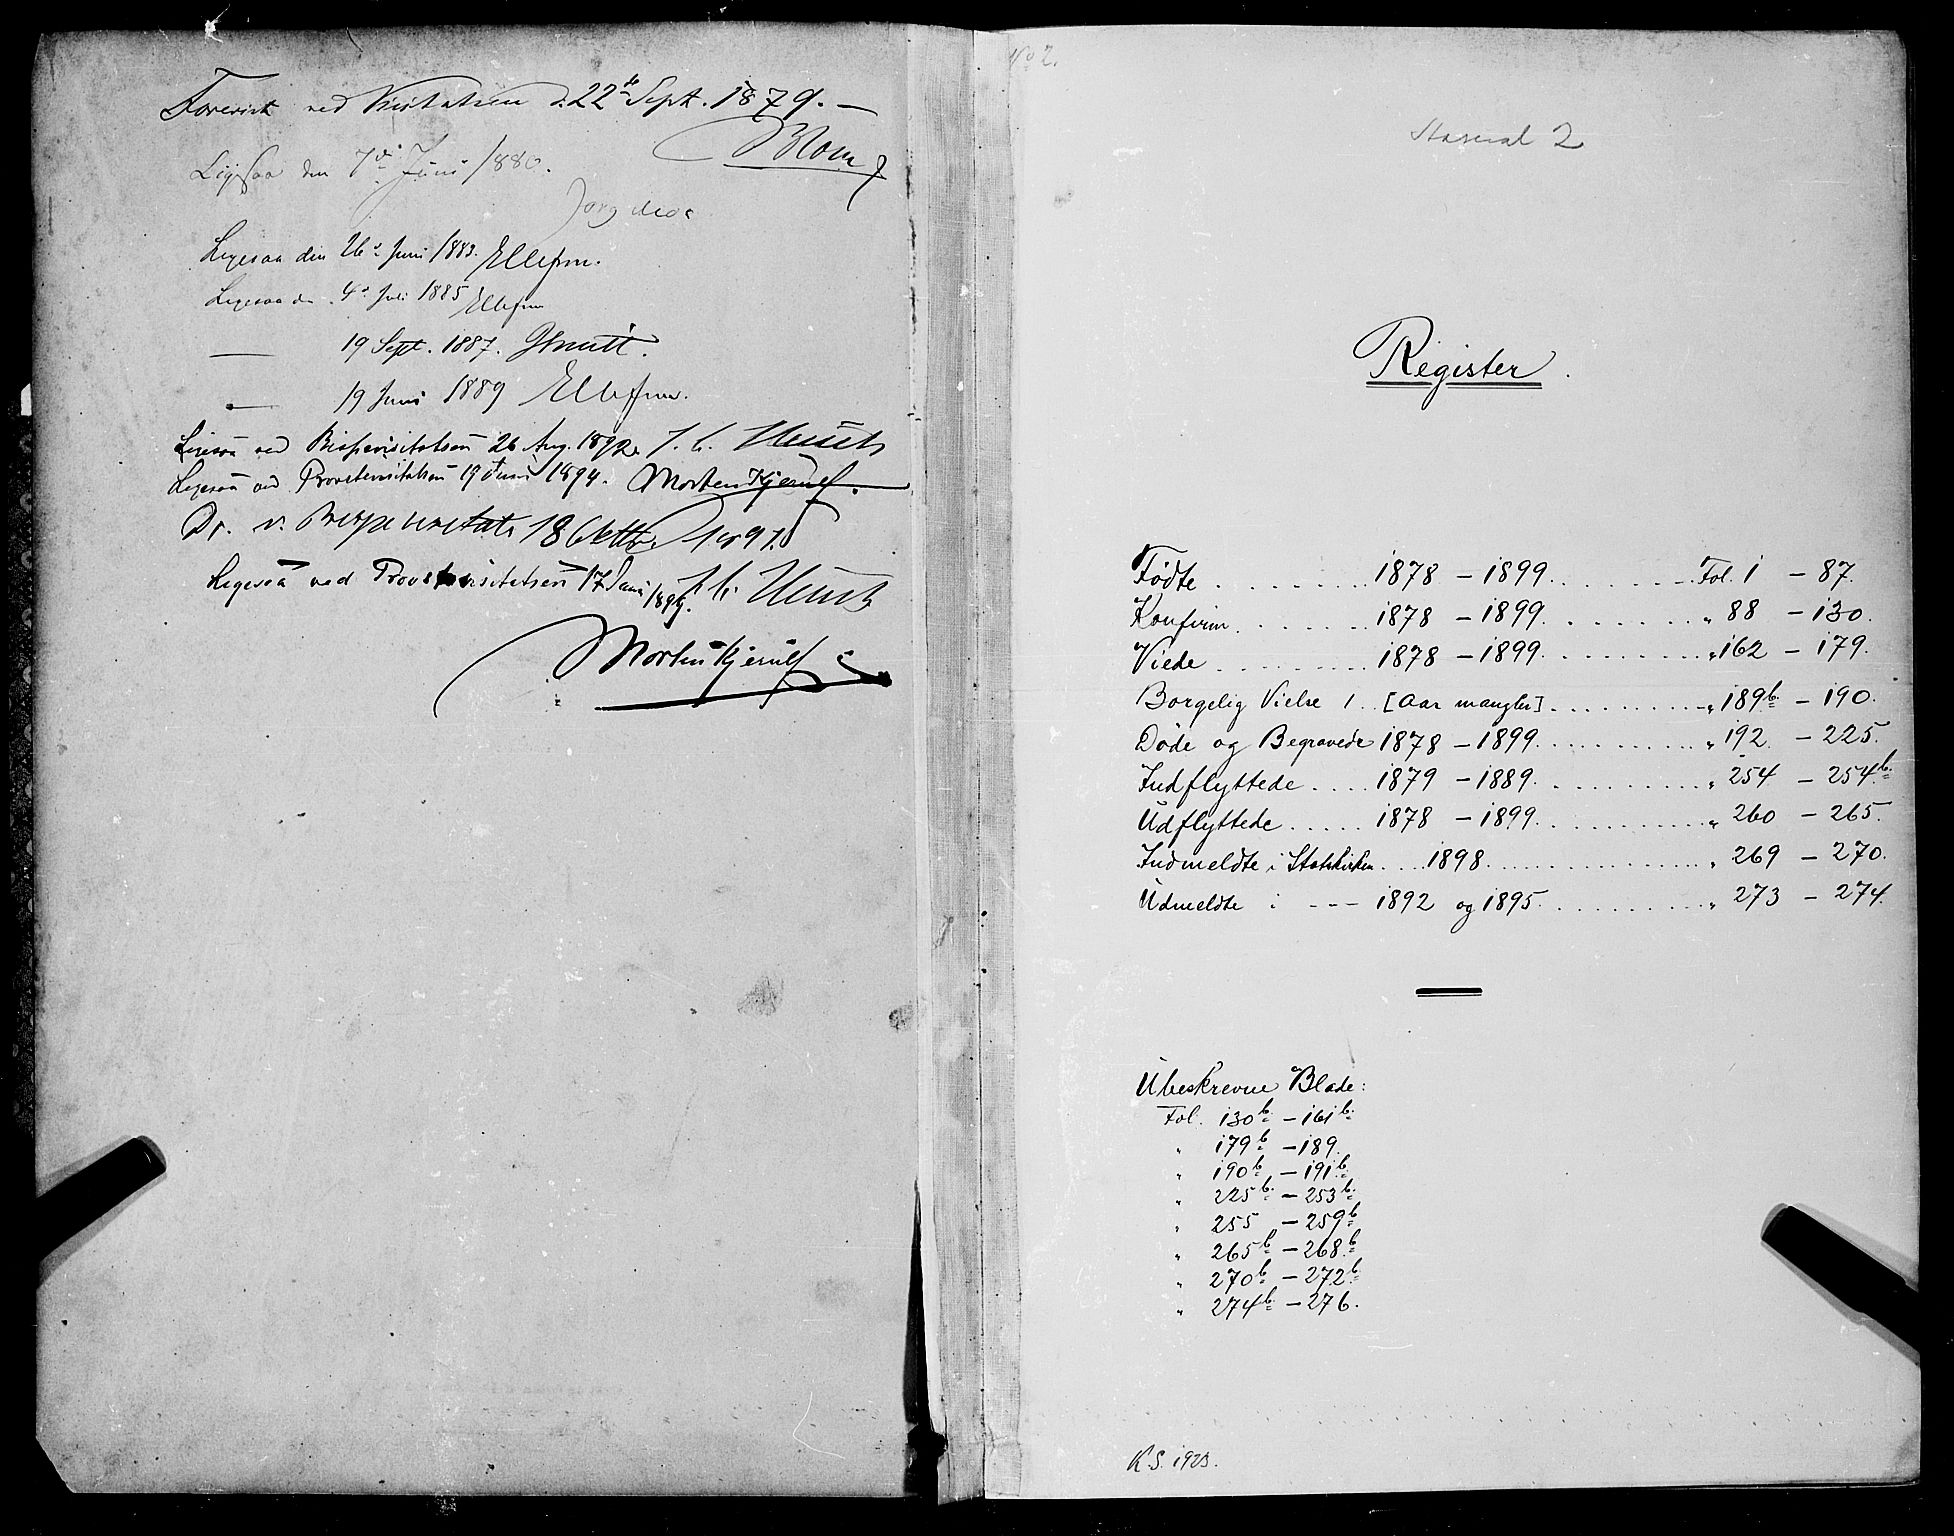 Forevist ved Visitatsen d. 22de Sept. 1879. —
Blom
Ligesaa den 7de Juni 1880.
Ligesaa den 26de Juni 1883. Ellefsen.
Ligesaa den 4de Juli 1885 Ellefsen
— 19 Sept. 1887.
— 19 Juni 1889 Ellefsen.
Ligesaa ved Bispevisitatsen 26 Aug. 1892. J. C. Heuch
Ligesaa ved Provstevisitatsen 19 Juni 1894. Morten Kjerulf.
Do. v. Bispevisitats 18 Oktbr. 1897.
J. C. Heuch
Ligesaa ved Provstevisitatsen 17 Juni 1899.
Morten Kjerulf
No 2.
2
Register.
Fødte . . . . . . 1878 – 1899. . . . . . . Fol. 1 – 87.
Konfirm. . . . . . 1878 – 1899. . . . . . . " 88 – 130.
Viede . . . . . . 1878 – 1899. . . . . . . " 162 – 179.
Borgelig Vielse 1 . . [Aar mangler] . . . . . . . " 189b – 190.
Døde og Begravede 1878 – 1899. . . . . . . " 192. – 225.
Indflyttede . . . . 1879 – 1889. . . . . . . " 254 – 254b.
Udflyttede . . . . . 1878 – 1899. . . . . . . " 260 – 265.
Indmeldte i Statskirken . . . . 1898. . . . . . . " 269 – 270.
Udmeldte i – – – 1892 og 1895. . . . . . . " 273 – 274.
Ubeskrevne Blade:
Fol. 130b – 161b.
" 179b – 189.
" 190b – 191b.
" 225b – 253b.
" 255 – 259b
" 265b – 268b
" 270b – 272b.
" 274b – 276.
K.S. 1923.